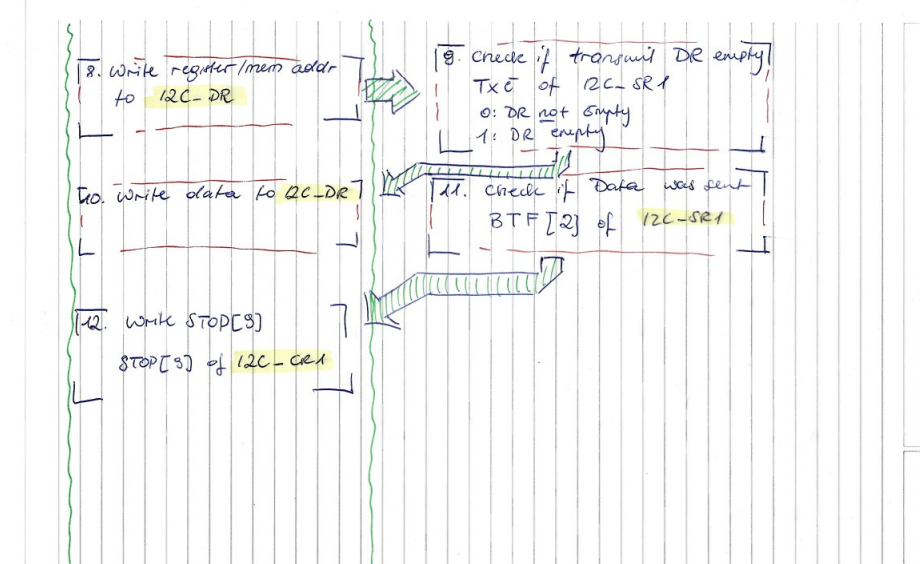 8. Write register/mem addr
to I2C_DR
9. Check if transmit DR empty
TxE of I2C_SR1
0: DR not Empty
1: DR empty
10. Write data to I2C_DR
11. Check if Data was sent
BTF[2] of I2C_SR1
12. Write STOP[9]
STOP[9] of I2C_CR1